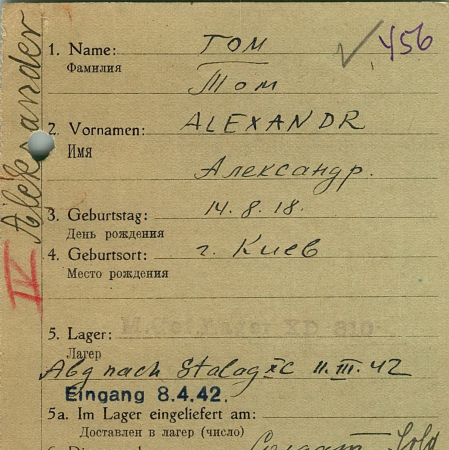 Aleksander
IV
1. Name: ТОМ 456
Фамилия
Том
2. Vornamen: ALEXANDR
Имя
Александр.
3. Geburtstag: 14. 8. 18.
День рождения
4. Geburtsort: г. Киев
Место рождения
5. Lager: M.-Gef.Lager XD 310
Лагер
Abg nach Stalag XC 11. III. 42
Eingang 8.4.42.
5a. Im Lager eingeliefert am:
Доставлен в лагер (число)